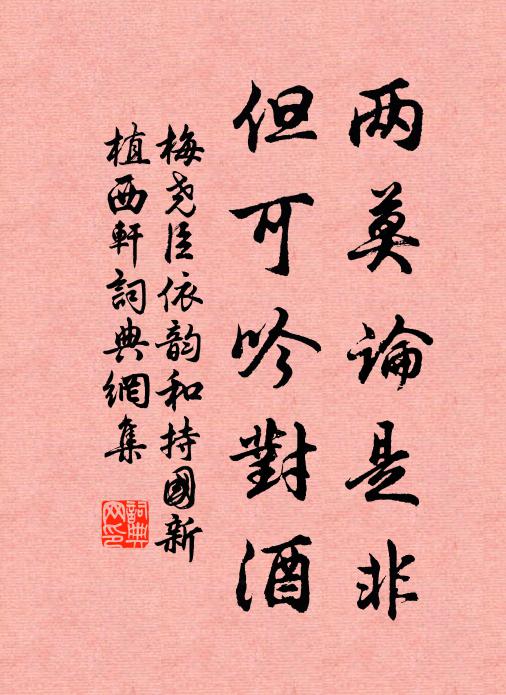 两莫論是非
但可吟對酒
梅尧臣依韵和持國新
植西軒詞典網集
詞典
网印